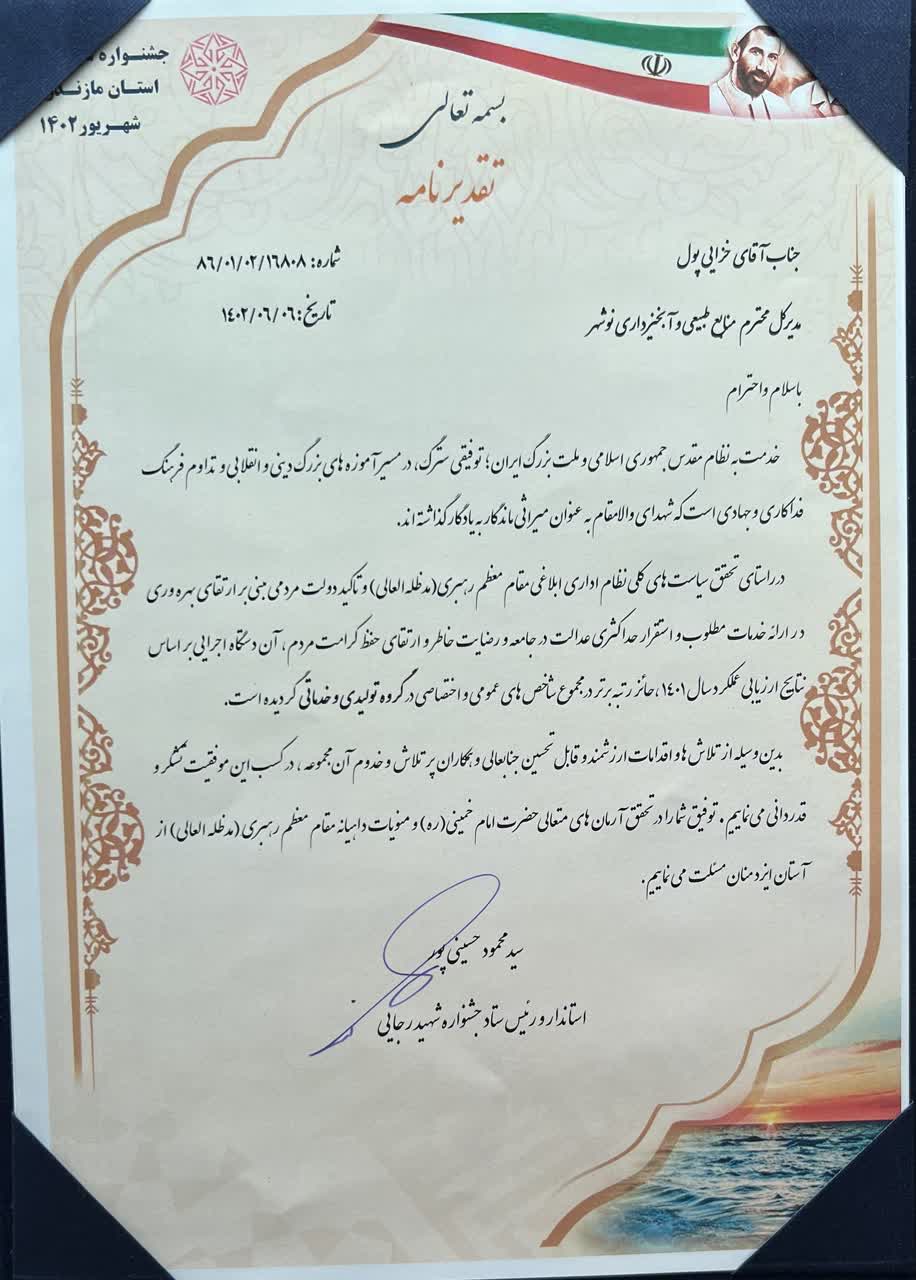 جشنواره
استان مازند
شهریور ۱۴۰۲
بسمه تعالی
تقدیرنامه
جناب آقای خزایی پول
شماره: ۸۶/۰۱/۰۲/۱۶۸۰۸
مدیرکل محترم منابع طبیعی و آبخیزداری نوشهر
تاریخ: ۱۴۰۲/۰۶/۰۶
باسلام و احترام
خدمت به نظام مقدس جمهوری اسلامی و ملت بزرگ ایران؛ توفیقی سترگ، در مسیر آموزه های بزرگ دینی و انقلابی و تداوم فرهنگ
فداکاری و جهادی است که شهدای والامقام به عنوان میراثی ماندگار به یادگار گذاشته اند.
در راستای تحقق سیاست های کلی نظام اداری ابلاغی مقام معظم رهبری (مدظله العالی) و تأکید دولت مردمی مبنی بر ارتقای بهره وری
در ارائه خدمات مطلوب و استقرار حداکثری عدالت در جامعه و رضایت خاطر و ارتقای حفظ کرامت مردم، آن دستگاه اجرایی بر اساس
نتایج ارزیابی عملکرد سال ۱۴۰۱، حائز رتبه برتر در مجموع شاخص های عمومی و اختصاصی در گروه تولیدی و خدماتی گردیده است.
بدین وسیله از تلاش ها و اقدامات ارزشمند و قابل تحسین جنابعالی و همکاران پر تلاش و خدوم آن مجموعه، در کسب این موفقیت تشکر و
قدردانی می نماییم. توفیق شما را در تحقق آرمان های متعالی حضرت امام خمینی (ره) و منویات داهیانه مقام معظم رهبری (مدظله العالی) از
آستان ایزد منان مسئلت می نماییم.
سید محمود حسینی پور
استاندار و رئیس ستاد جشنواره شهید رجایی